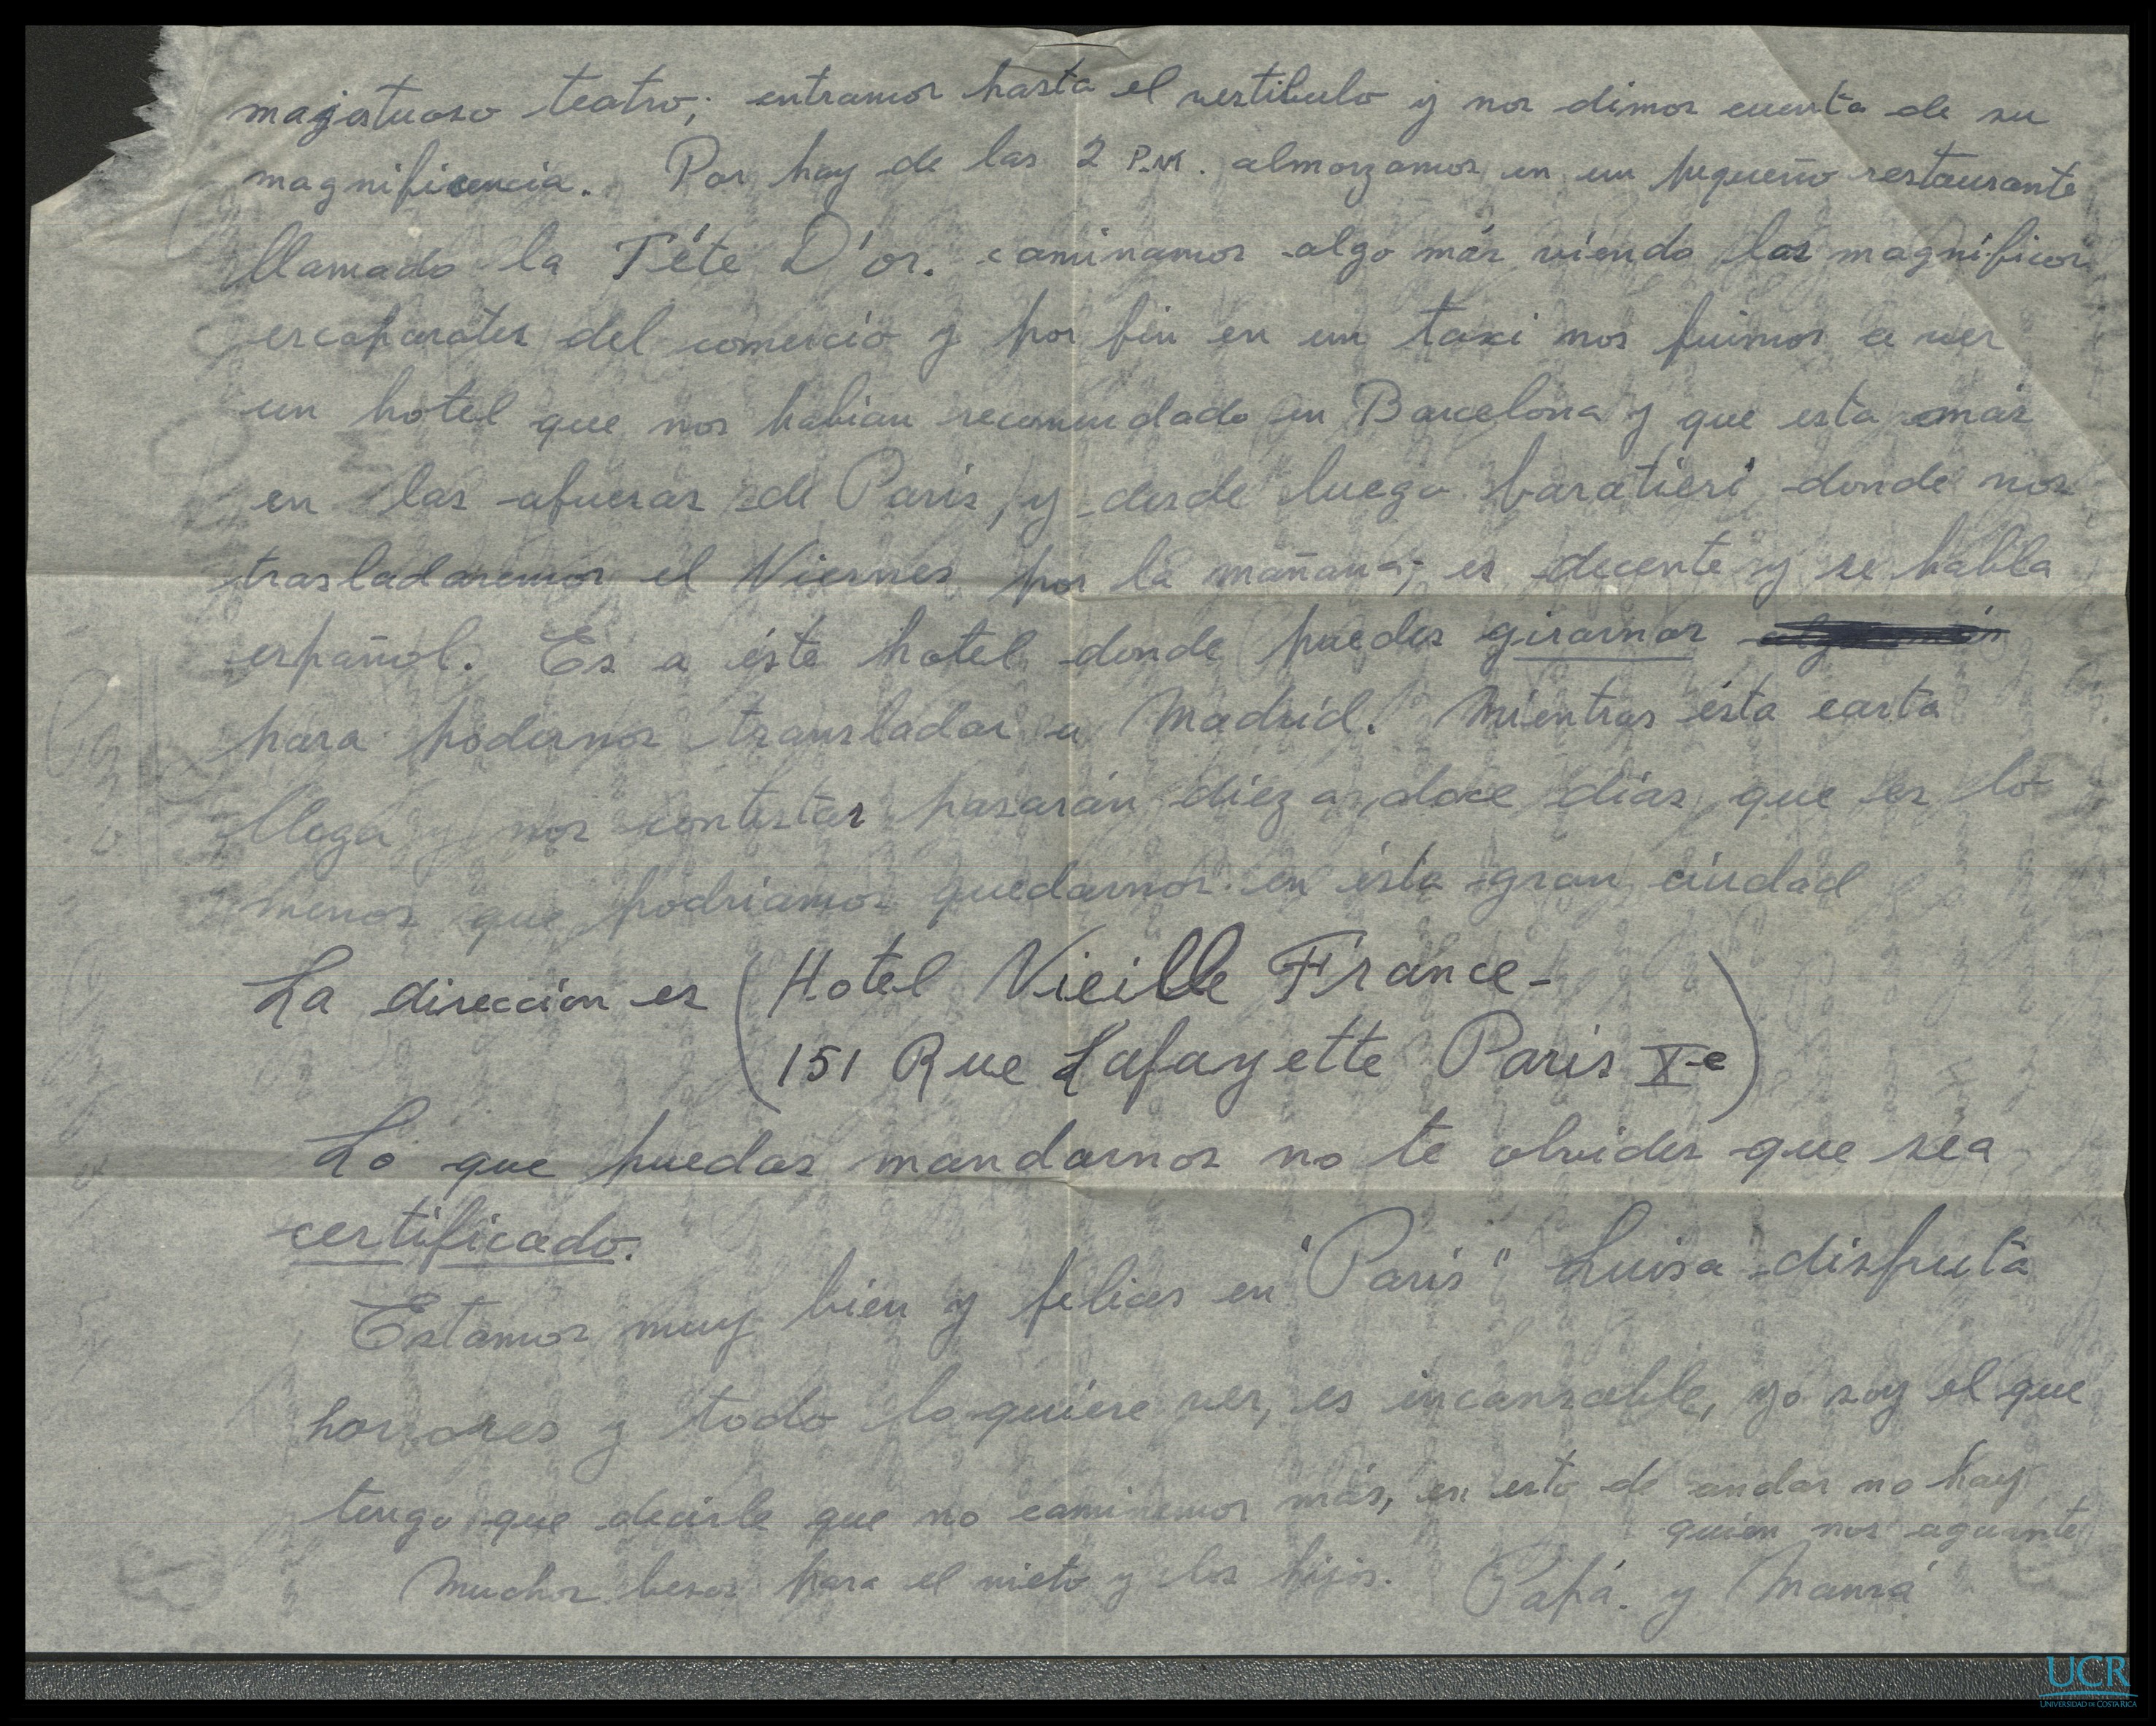 magestuoso teatro; entramos hasta el vestibulo y nos dimos cuenta de su
magnificencia. Por hay de las 2 P.M. almorzamos en un pequeño restaurante
llamado la Téte D'or. caminamos algo más viendo los magníficos
escaparates del comercio y por fin en un taxi nos fuimos a ver
un hotel que nos habian recomendado en Barcelona y que esta más
en las afueras de Paris, y desde luego baratieri donde nos
trasladaremos el Viernes por la mañana; es decente y se habla
español. Es a éste hotel donde puedes girarnos
para podernos transladar a Madrid. Mientras ésta carta
llega y nos contestas pasarán diez a doce dias, que es lo
menos que podriamos quedarnos en ésta gran ciudad
La direccion es (Hotel Vieille France-
151 Rue Lafayette Paris X-e)
Lo que puedas mandarnos no te olvides que sea
certificado.
Estamos muy bien y felices en "Paris" Luisa disfruta
horrores y todo lo quiere ver, es incansable, yo soy el que
tengo que decirle que no caminemos más, en esto de andar no hay
quien nos aguante
Muchos besos para el nieto y los hijos. Papá. y Mamá
UCR
UNIVERSIDAD DE COSTA RICA